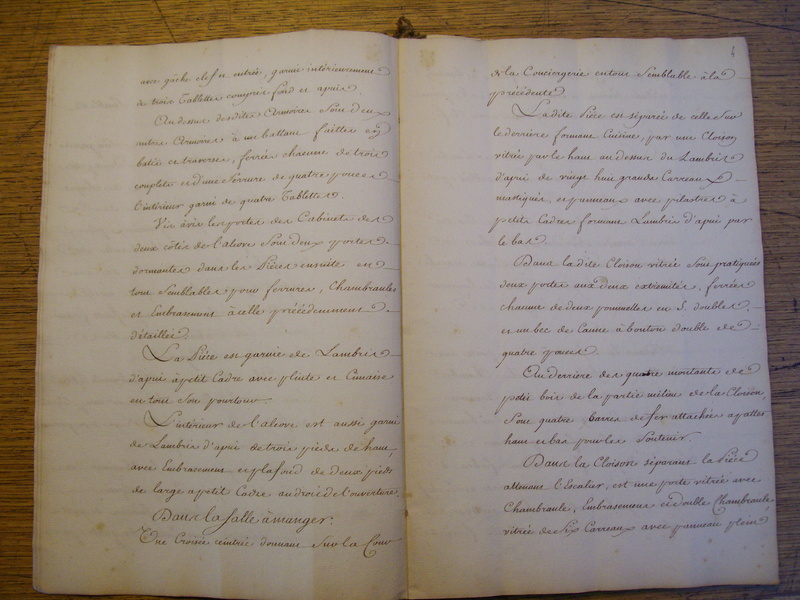 avec gâche clef et entrée, garnie intérieurement
de trois Tablettes compris fond et apuis.
Au dessus desdites Armoires Sont deux
autres Armoires à un battant faittes en
batis et traverses, ferrées chacune de trois
couplets et d'une Serrure de quatre pouces
l'intérieur garni de quatre Tablettes.
Vis àvis les portes des Cabinets des
deux cotés de l'alcove Sont deux portes
dormantes dans les Pièces ensuite en
tout Semblables pour ferrures, Chambranles
et Embrasement à celle précédemment
détaillée.
La Pièce est garnie de Lambris
d'apui à petit Cadre avec plinte et Cimaise
en tout Son pourtour.
L'intérieur de l'alcove est aussi garni
de Lambris d'apui de trois pieds de haut
avec Embrasement et plafond de deux pieds
de large à petit Cadre au droit de l'ouverture.
Dans la Salle à manger.
Une Croisée ceintrée donnant Sur la Cour
4
de la Conciergerie en tout Semblable à la
précédente
Ladite Pièce est séparée de celle Sur
le derrière formant Cuisine, par une Cloison
vitrée par le haut au dessus du Lambris
d'apui de vingt huit grands Carreaux
mastiqués, et panneaux avec pilastres à
petits Cadres formant Lambris d'apui par
le bas.
Dans ladite Cloison vitrée Sont pratiquées
deux portes aux deux extremités, ferrées
chacune de deux pommelles en S. doubles,
et un bec de Canne à bouton double de
quatre pouces.
Au derrière des quatre montants de
potie bois de la partie milieu de la Cloison
Sont quatre barres de fer attachées à pattes
haut et bas pour les Soutenir.
Dans la Cloison séparant la Pièce
attenant l'Escalier, est une porte vitrée avec
Chambranle, Embrasement et double Chambranle,
vitrée de Six Carreaux avec panneau plein